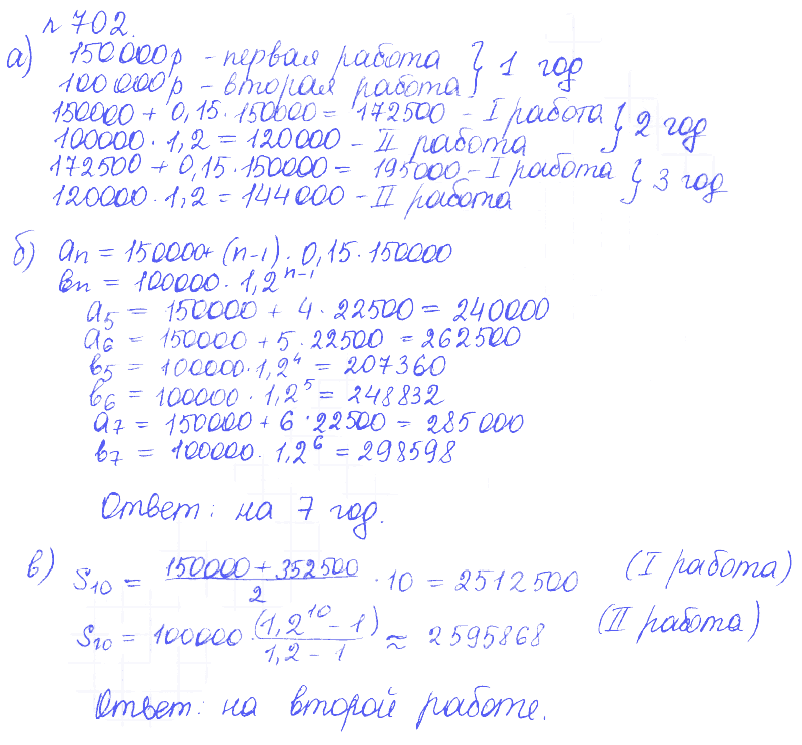 № 702.
а) 150000р - первая работа } 1 год
100000р - вторая работа
150000 + 0,15·150000 = 172500 - I работа } 2 год
100000·1,2 = 120000 - II работа
172500 + 0,15·150000 = 195000 - I работа } 3 год
120000·1,2 = 144000 - II работа
б) an = 150000+(n-1)·0,15·150000
bn = 100000·1,2^(n-1)
a5 = 150000 + 4·22500 = 240000
a6 = 150000 + 5·22500 = 262500
b5 = 100000·1,2^4 = 207360
b6 = 100000·1,2^5 = 248832
a7 = 150000 + 6·22500 = 285000
b7 = 100000·1,2^6 = 298598
Ответ: на 7 год.
в) S10 = (150000 + 352500)/2 · 10 = 2512500 (I работа)
S10 = 100000 (1,2^10 - 1)/(1,2 - 1) ≈ 2595868 (II работа)
Ответ: на второй работе.